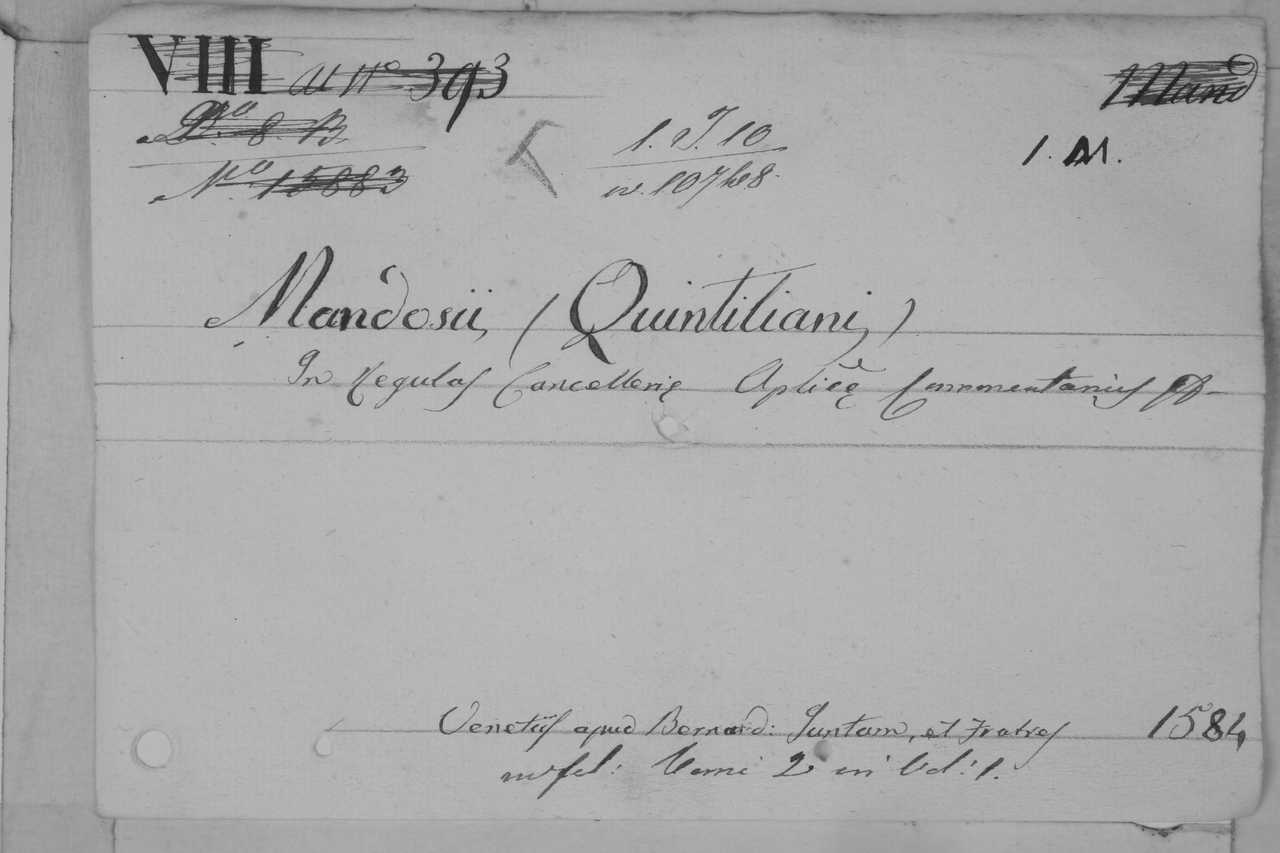 VIII
393
Mand
No. 8. B
1. J. 10
1. M.
No. 15883
n. 10768
Mandosii, (Quintiliani)
In Regulas Cancellerię Aplicę Commentarius
Venetiis apud Bernard: Juntam, et Fratres 1584
in fol: Tomi 2 in Vol: 1.